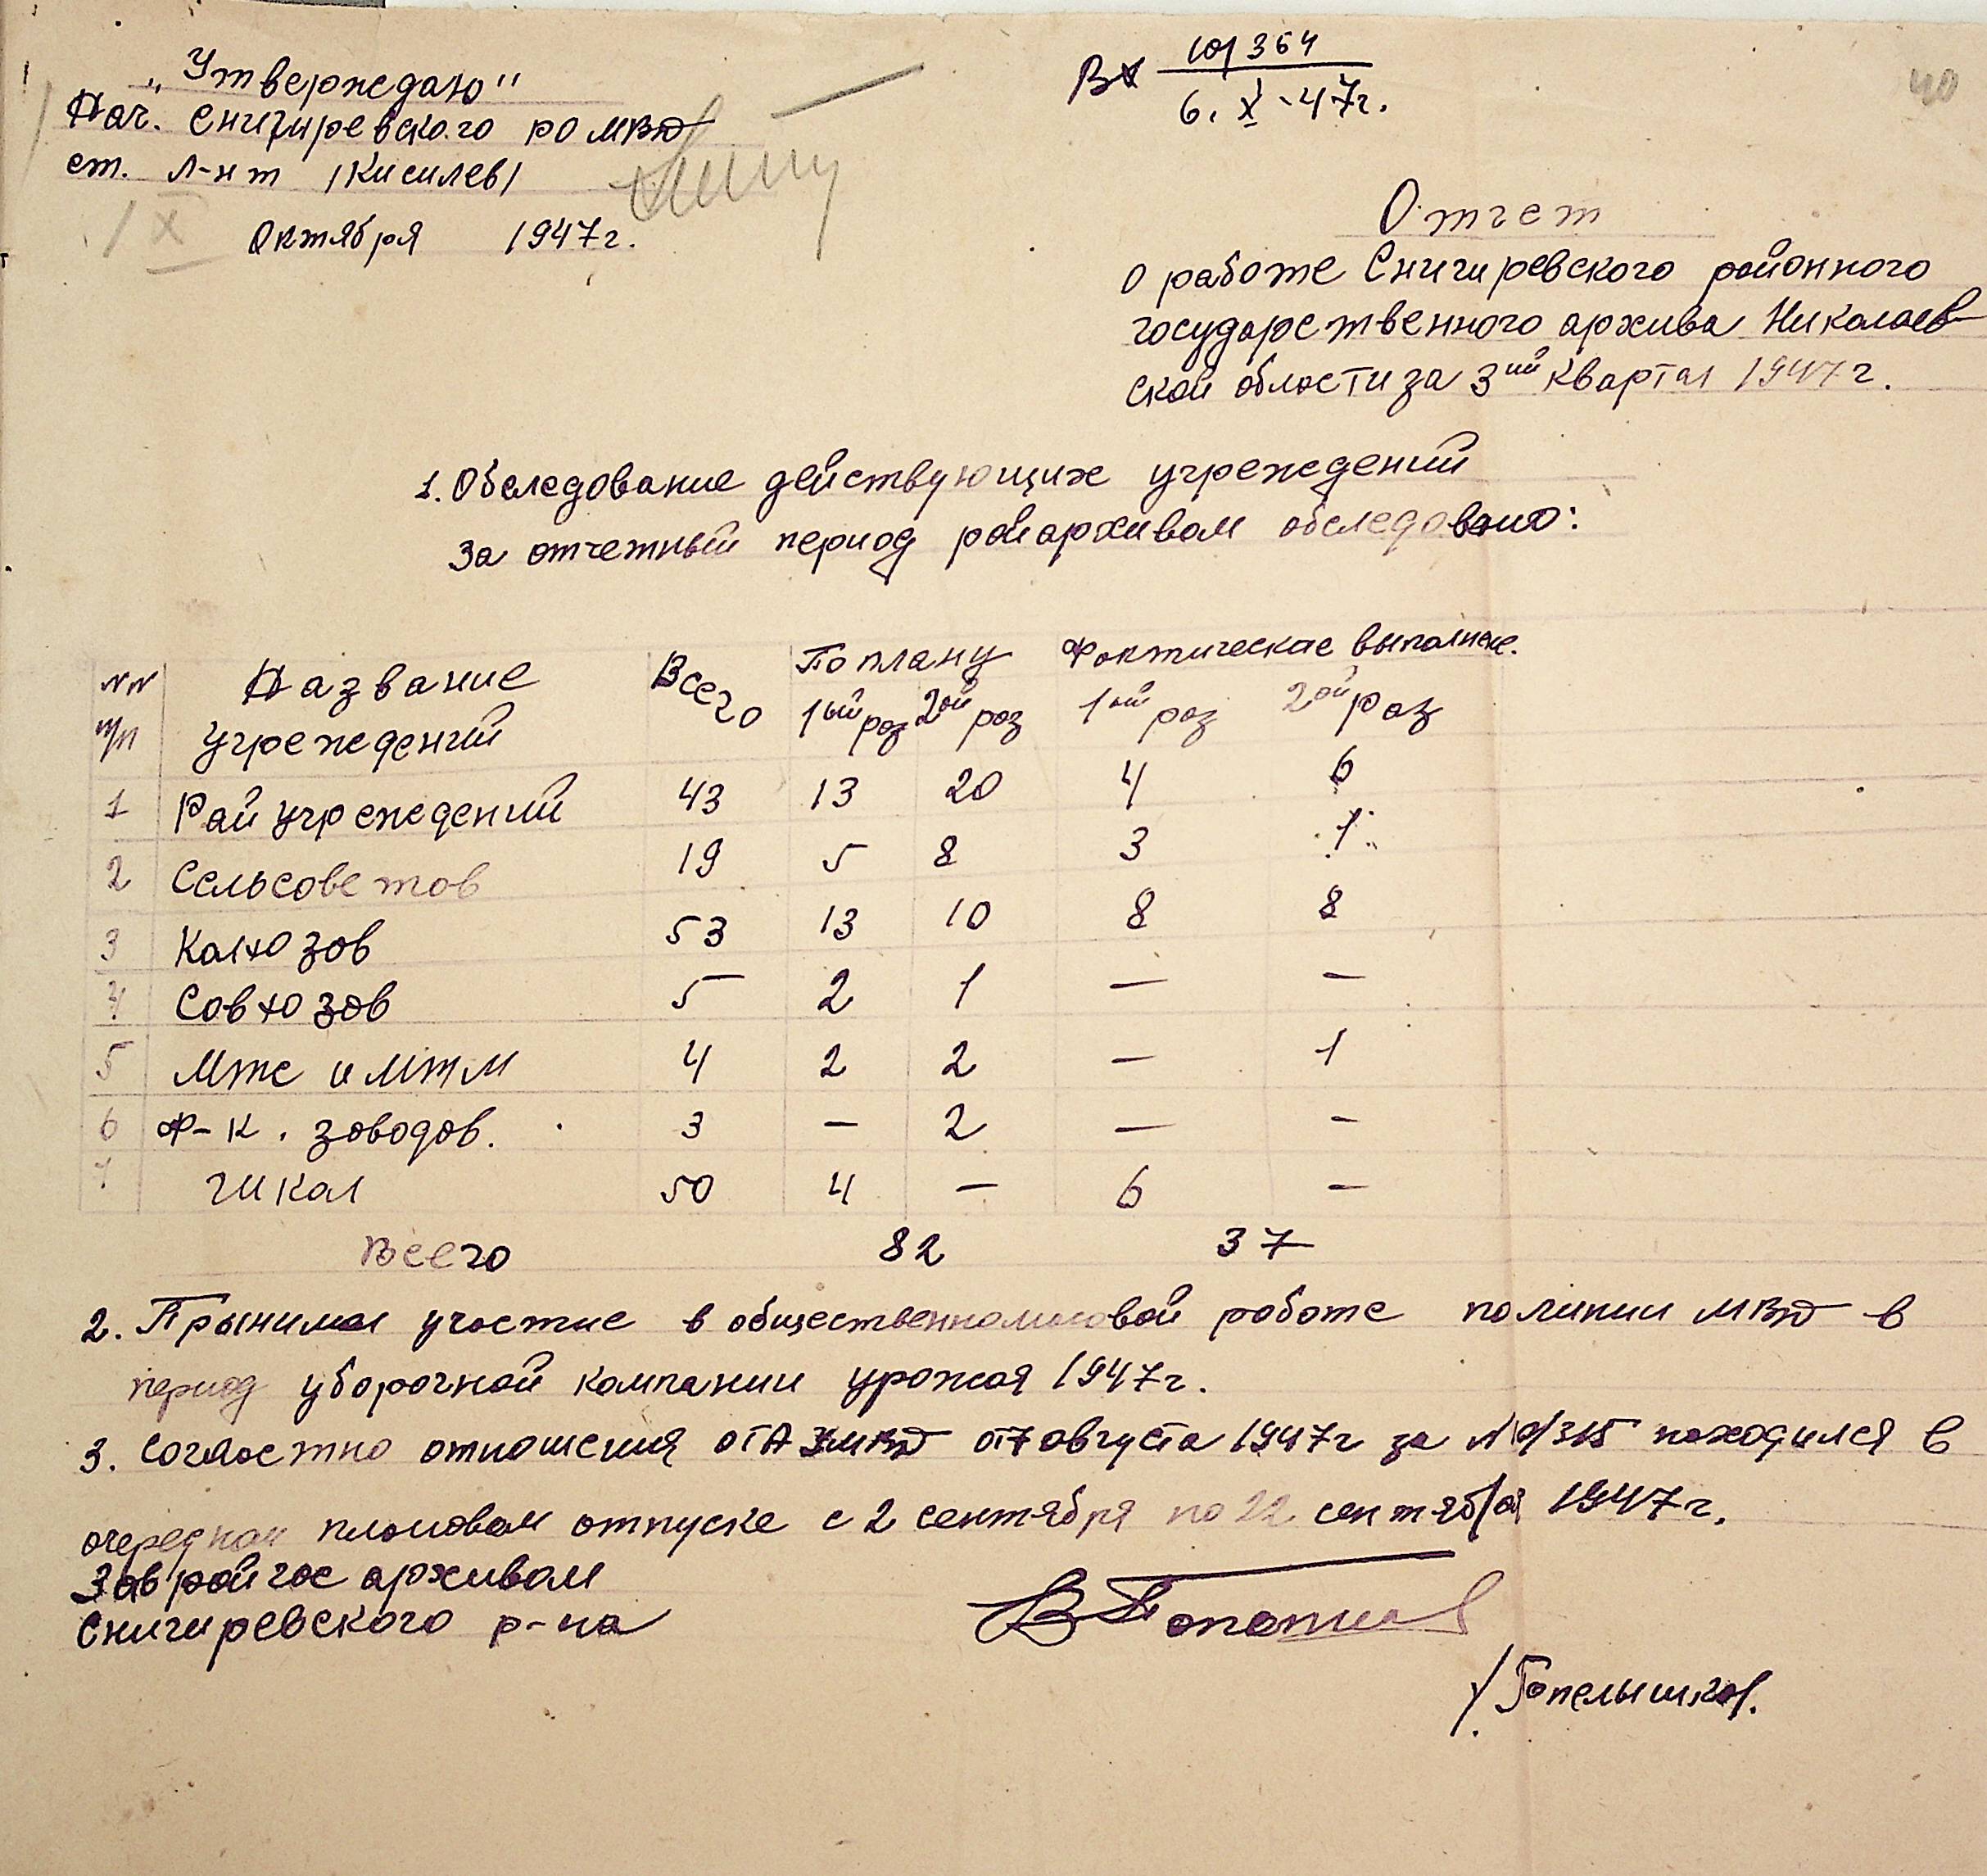 „Утверждаю"
Нач. Снигиревского РО МВД
ст. л-нт /Кисилев/
1 X Октября 1947г.
Вх 10/364
6. X - 47г.
40
Отчет
о работе Снигиревского районного
государственного архива Николаев-
ской области за 3ий квартал 1947г.
1. Обследование действующих учреждений
За отчетный период райархивом обследовано:
NN п/п Название учреждений Всего По плану Фактическое выполнение.
1ый раз 2ой раз 1ый раз 2ой раз
1 Рай учреждений 43 13 20 4 6
2 Сельсоветов 19 5 8 3 1
3 Колхозов 53 13 10 8 8
4 Совхозов 5 2 1 — —
5 Мтс и мтм 4 2 2 — 1
6 Ф-к. заводов. 3 — 2 — —
7 школ 50 4 — 6 —
Всего 82 37
2. Прынимал участие в общественномассовой работе по линии МВД в
период уборочной компании урожая 1947г.
3. Согластно отношения ОГА УМВД от 7 августа 1947г за № 9/315 находился в
очередном плановом отпуске с 2 сентября по 22 сентября 1947г.
Зав райгос архивом
Снигиревского р-на